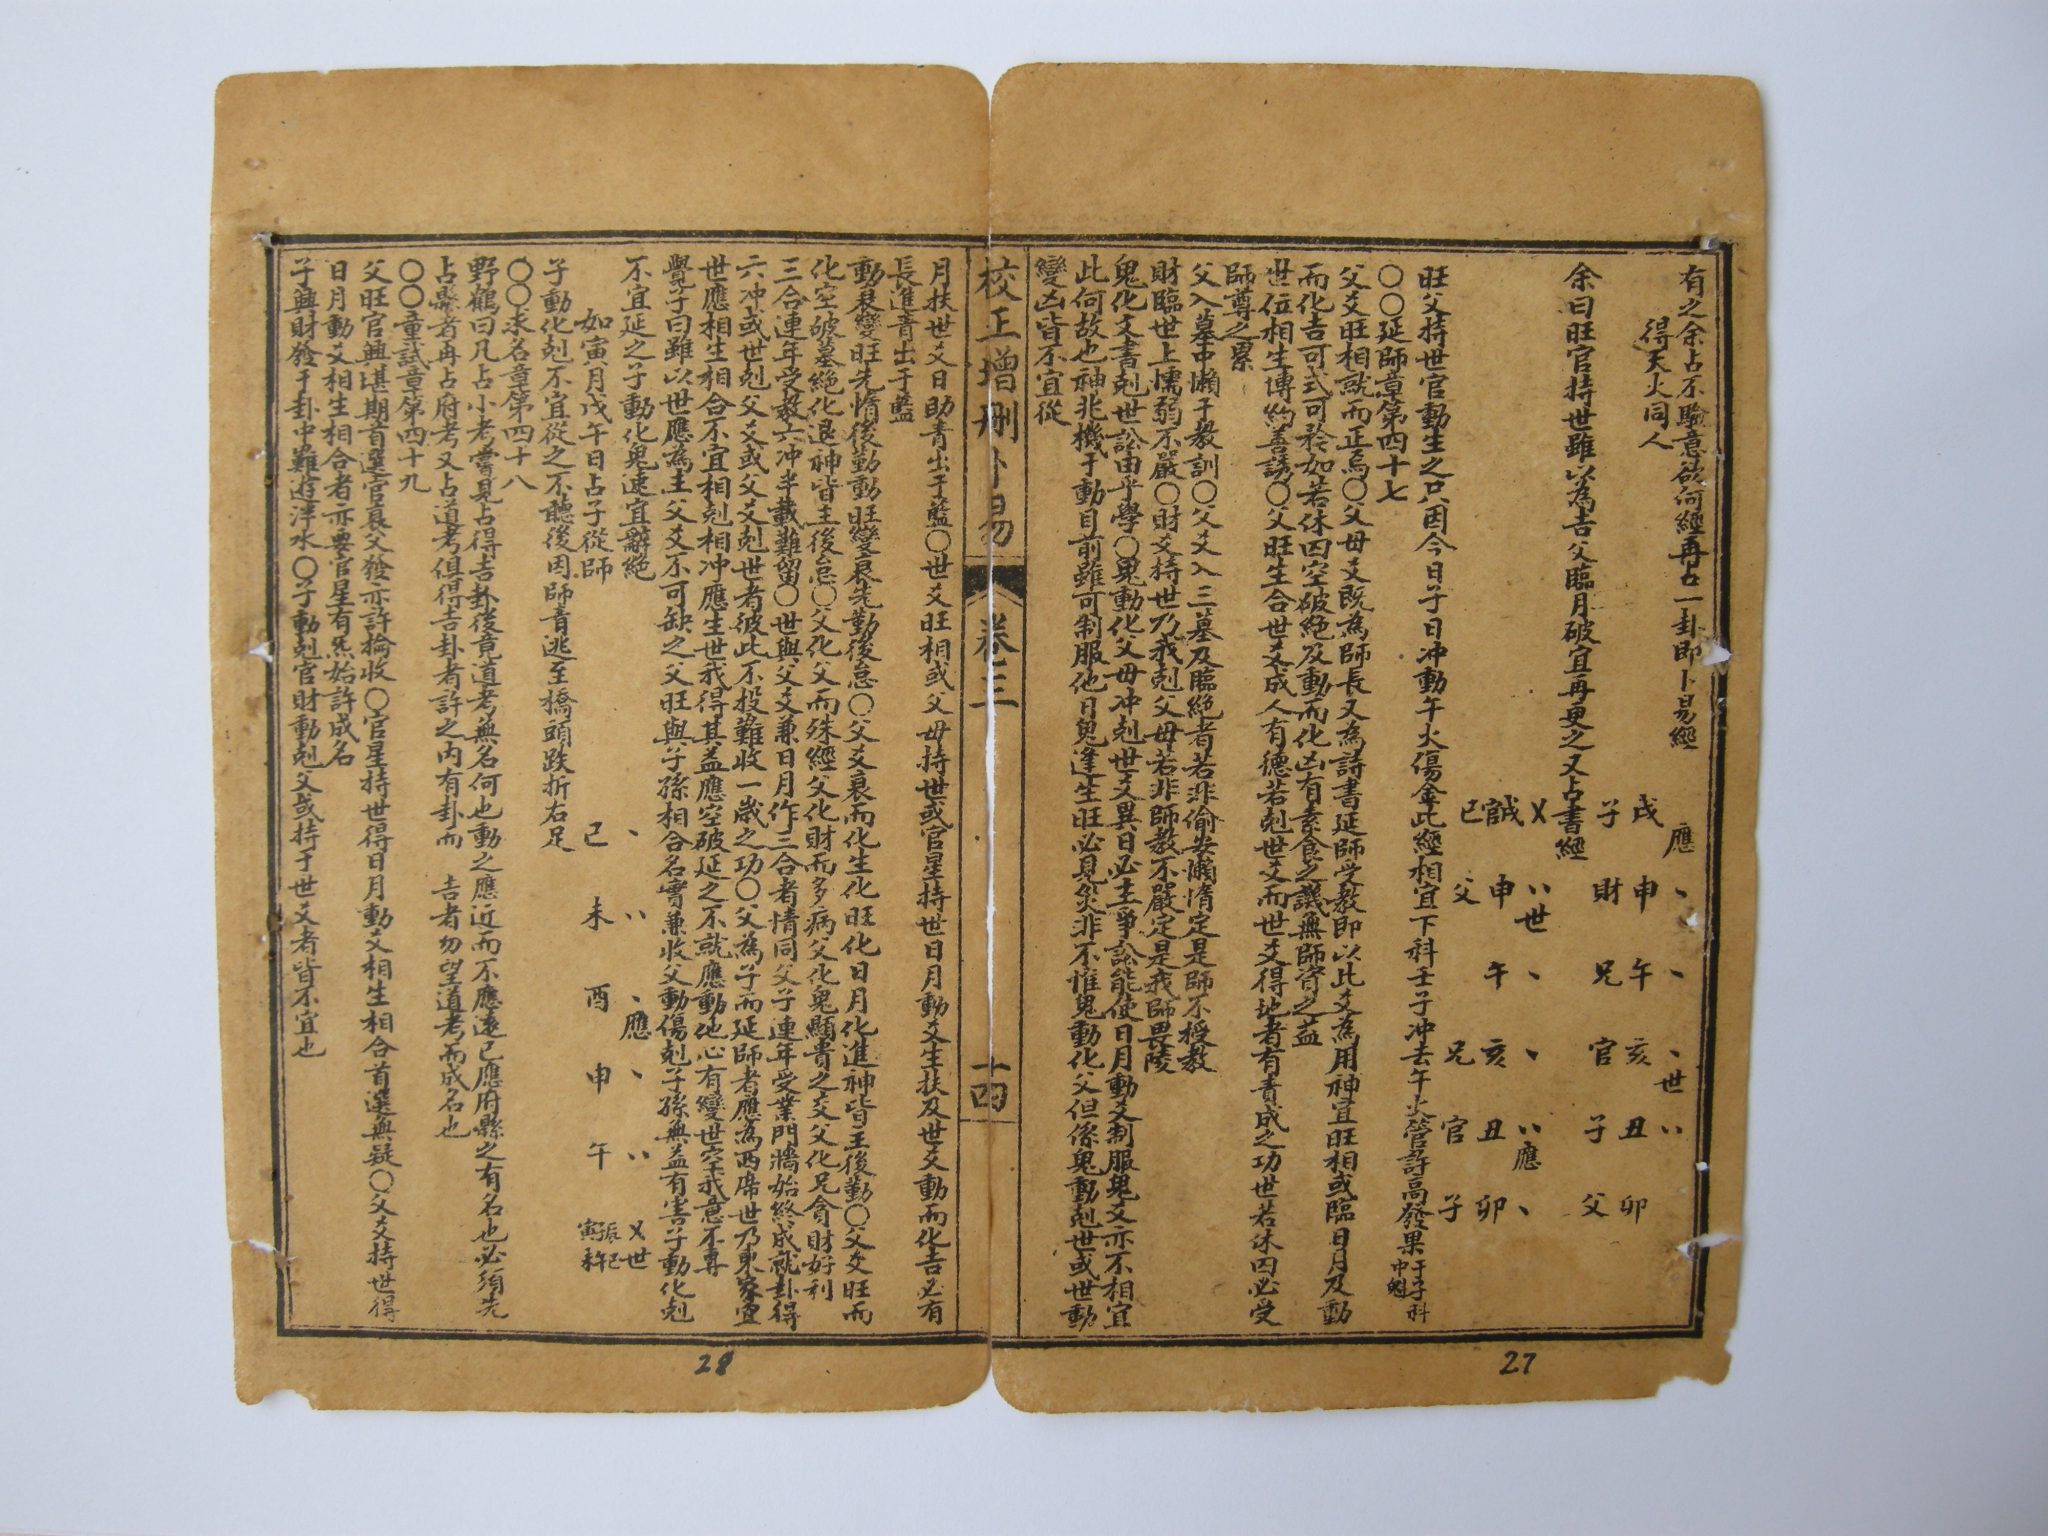 有之余占不驗意欲何經再占一卦即卜易經
得天火同人
應 、 、 、世 、、
戌 申 午 亥 丑 卯
子 財 兄 官 子 父
余曰旺官持世雖以為吉父臨月破宜再更之又占書經
乂 、、世 、 、 、、應 、
戌 申 午 亥 丑 卯
官
巳 父 兄 官 子
旺父持世官動生之只因今日子日冲動午火傷金此經相宜下科壬子冲去午火管許高發果于子科中魁
○○延師章第四十七
父爻旺相就而正焉○父母爻既為師長又為詩書延師受教即以此爻為用神宜旺相或臨日月及動
而化吉可式可矜如若休囚空破絶及動而化凶有素食之譏無師資之益
世位相生博約善誘○父旺生合世爻成人有德若剋世爻而世爻得地者有責成之功世若休囚必受
師尊之累
父入墓中懶于教訓○父爻入三墓及臨絕者若非偷安懶惰定是師不授教
財臨世上懦弱不嚴○財爻持世乃我剋父母若非師教不嚴定是我師畏陵
鬼化文書剋世訟由乎學○鬼動化父母冲剋世爻異日必主爭訟能使日月動爻制服鬼爻亦不相宜
此何故也神兆機于動目前雖可制服他日鬼逢生旺必見災非不惟鬼動化父但係鬼動剋世或世動
變凶皆不宜從
校正增刪卜易 卷三 十四
月扶世爻日助青出于藍○世爻旺相或父母持世或官星持世日月動爻生扶及世爻動而化吉必有
長進青出于藍
動衰變旺先惰後勤動旺變衰先勤後怠○父爻衰而化生化旺化日月化進神皆主後勤○父爻旺而
化空破墓絕化退神皆主後怠○父化父而殊經父化財而多病父化鬼顯貴之父父化兄貪財好利
三合連年受教六冲半載難留○世與父爻兼日月作三合者情同父子連年受業門牆始終成就卦得
六冲或世剋父爻或父爻剋世者彼此不投難收一歲之功○父為子而延師者應為西席世乃東家宜
世應相生相合不宜相剋相冲應生世我得其益應空破延之不就應動他心有變世空我意不專
覺子曰雖以世應為主父爻不可缺之父旺與子孫相合名實兼收父動傷剋子孫無益有害子動化剋
不宜延之子動化鬼速宜辭絕
如寅月戊午日占子從師
、 、、 、應 、 、、 乂世
已 未 酉 申 午 辰
子動化剋不宜從之不聽後因師責逃至橋頭跌折右足
○○求名章第四十八
野鶴曰凡占小考嘗見占得吉卦後竟道考無名何也動之應近而不應遠已應府縣之有名也必須先
占縣者再占府考又占道考俱得吉卦者許之內有卦而 吉者勿望道考而成名也
○○童試章第四十九
父旺官興堪期首選官衰父發亦許掄收○官星持世得日月動爻相生相合首選無疑○父爻持世得
日月動爻相生相合者亦要官星有炁始許成名
子興財發于卦中難遊泮水○子動剋官財動剋父或持于世爻者皆不宜也
28
27